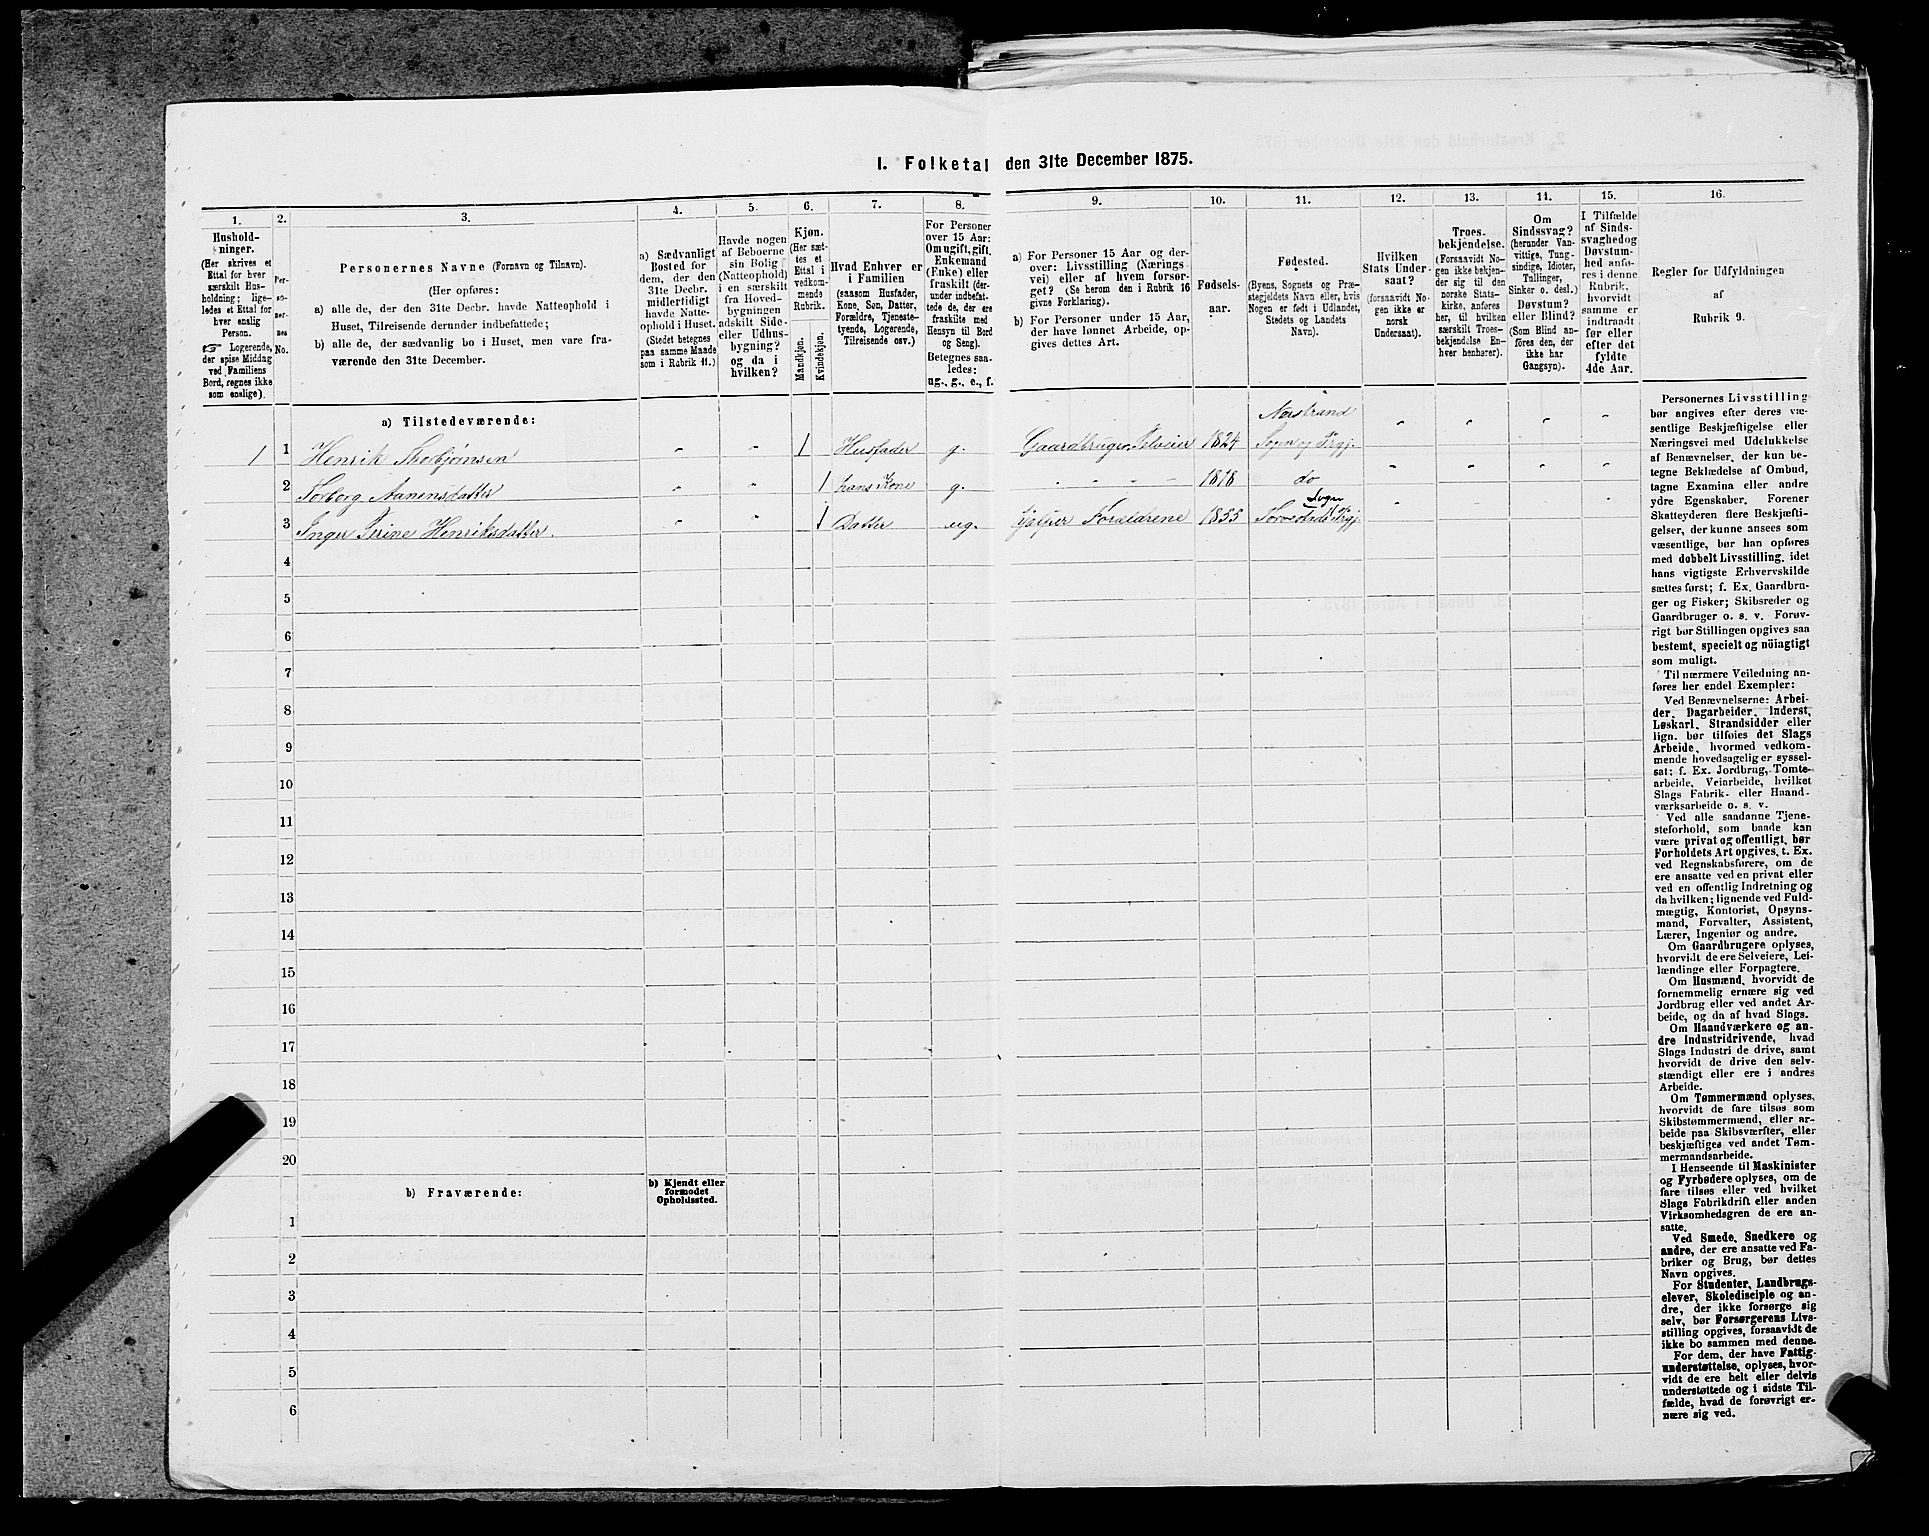 1. Folketal den 31te December 1875.
1. 2. 3. 4. 5. 6. 7. 8. 9. 10. 11. 12. 13. 14. 15. 16.
Hushold-
ninger.
(Her skrives et
Ettal for hver
særskilt Hus-
holdning; lige-
ledes et Ettal for
hver enslig
Person.
☞ Logerende,
der spise Middag
ved Familiens
Bord, regnes ikke
som enslige).
Per-
so-
ner-
nes
No.
Personernes Navne (Fornavn og Tilnavn).
(Her opføres:
a) alle de, der den 31te Decbr. havde Natteophold i
Huset, Tilreisende derunder indbefattede;
b) alle de, der sædvanlig bo i Huset, men vare fra-
værende den 31te December.
a) Sædvanligt
Bosted for
dem, der den
31te Decbr.
midlertidigt
havde Natte-
ophold i Huset.
(Stedet betegnes
paa samme Maade
som i Rubrik 11.)
Havde nogen
af Beboerne
sin Bolig
(Natteophold)
i en særskilt
fra Hoved-
bygningen
adskilt Side-
eller Udhus-
bygning?
og da i
hvilken?
Kjøn.
(Her sæt-
tes et
Ettal i
vedkom-
mende
Rubrik.
Mandkjøn.
Kvindekjøn.
Hvad Enhver er
i Familien
(saasom Husfader,
Kone, Søn, Datter,
Forældre, Tjeneste-
tyende, Logerende,
Tilreisende osv.)
For Personer
over 15 Aar:
Om ugift, gift,
Enkemand
(Enke) eller
fraskilt (der-
under indbefat-
tede de, der ere
fraskilte med
Hensyn til Bord
og Seng).
Betegnes saa-
ledes:
ug., g., e., f.
a) For Personer 15 Aar og der-
over: Livsstilling (Nærings-
vei) eller af hvem forsør-
get? (Se herom den i Rubrik 16
givne Forklaring).
b) For Personer under 15 Aar,
der have lønnet Arbeide, op-
gives dettes Art.
Fødsels-
aar.
Fødested.
(Byens, Sognets og Præ-
stegjeldets Navn eller, hvis
Nogen er født i Udlandet,
Stedets og Landets
Navn).
Hvilken
Stats Under-
saat?
(forsaavidt No-
gen ikke er
norsk
Undersaat).
Troes-
bekjendelse.
(Forsaavidt No-
gen ikke bekjen-
der sig til den
norske Stats-
kirke, anføres
her, til hvilken
særskilt Troes-
bekjendelse En-
hver henhører).
Om
Sindssvag?
(herunder Van-
vittige, Tung-
sindige, Idioter,
Tullinger,
Sinker o. desl.)
Døvstum?
eller Blind?
(Som Blind an-
føres den, der
ikke har
Gangsyn).
I Tilfælde
af Sinds-
svaghed og
Døvstum-
hed anfø-
res i denne
Rubrik,
hvorvidt
samme er
indtraadt
før eller
efter det
fyldte
4de Aar.
Regler for Udfyldningen
af
Rubrik 9.
a) Tilstedeværende:
1 1 Henrik Thorbjørnsen " " 1 Husfader g. Gaardbruger, Selveier 1824 Nerstrand Sogn og Prgj. " " " "
2 Torborg Aanensdatter " " 1 hans Kone g. " " " " 1818 do " " " "
3 Inger Serine Henriksdatter. " " 1 Datter ug. hjelper Forældrene 1855 Torvestads Sogn Prgj. " " " "
4
5
6
7
8
9
10
11
12
13
14
15
16
17
18
19
20
b) Fraværende:
b) Kjendt eller
formodet
Opholdssted.
1
2
3
4
5
6
Personernes Livsstilling
bør angives efter deres væ-
sentlige Beskjæftigelse eller
Næringsvei med Udelukkelse
af Benævnelser, der kun be-
tegne Beklædelse af Ombud,
tagne Examina eller andre
ydre Egenskaber. Forener
Skatteyderen flere Beskjæfti-
gelser, der kunne ansees som
væsentlige, bør han opføres
med dobbelt Livsstilling, idet
hans vigtigste Erhvervskilde
sættes først; f. Ex. Gaardbru-
ger og Fisker; Skibsreder og
Gaardbruger o. s. v. Forøv-
rigt bør Stillingen opgives saa
bestemt, specielt og nöiagtigt
som muligt.
Til nærmere Veiledning an-
føres her endel Exempler:
Ved Benævnelserne: Arbei-
der, Dagarbeider, Inderst,
Løskarl, Strandsidder eller
lign. bør tilføies det Slags
Arbeide, hvormed vedkom-
mende hovedsagelig er syssel-
sat; f. Ex. Jordbrug, Tomte-
arbeide, Veiarbeide, hvilket
Slags Fabrik- eller Haand-
værksarbeide o. s. v.
Ved alle saadanne Tjene-
steforhold, som baade kan
være privat og offentligt, bør
Forholdets Art opgives, t. Ex.
ved Regnskabsførere, om de
ere ansatte ved en privat eller
ved en offentlig Indretning og
da hvilken; lignende ved Fuld-
mægtig, Kontorist, Opsyns-
mand, Forvalter, Assistent,
Lærer, Ingeniør og andre.
Om Gaardbrugere oplyses,
hvorvidt de ere Selveiere, Lei-
lændinge eller Forpagtere.
Om Husmænd, hvorvidt de
fornemmelig ernære sig ved
Jordbrug eller ved andet Ar-
beide, og da af hvad Slags.
Om Haandværkere og an-
dre Industridrivende, hvad
Slags Industri de drive, samt
hvorvidt de drive den selv-
stændigt eller ere i andres
Arbeide.
Om Tømmermænd oplyses,
hvorvidt de fare tilsøs som
Skibstømmermænd, eller ar-
beide paa Skibsværfter, eller
beskjæftiges ved andet Tøm-
mermandsarbeide.
I Henseende til Maskinister
og Fyrbødere oplyses, om de
fare tilsøs eller ved hvilket
Slags Fabrikdrift eller anden
Virksomhedsgren de ere an-
satte.
Ved Smede, Snedkere og
andre, der ere ansatte ved Fa-
briker og Brug, bør dettes
Navn opgives.
For Studenter, Landbrugs-
elever, Skoledisciple og an-
dre, der ikke forsørge sig
selv, bør Forsørgerens Livs-
stilling opgives, forsaavidt de
ikke bo sammen med denne.
For dem, der have Fattig-
understøttelse, oplyses, hvor-
vidt de ere helt eller delvis
understøttede og i sidste Til-
fælde, hvad de forøvrigt er-
nære sig ved.